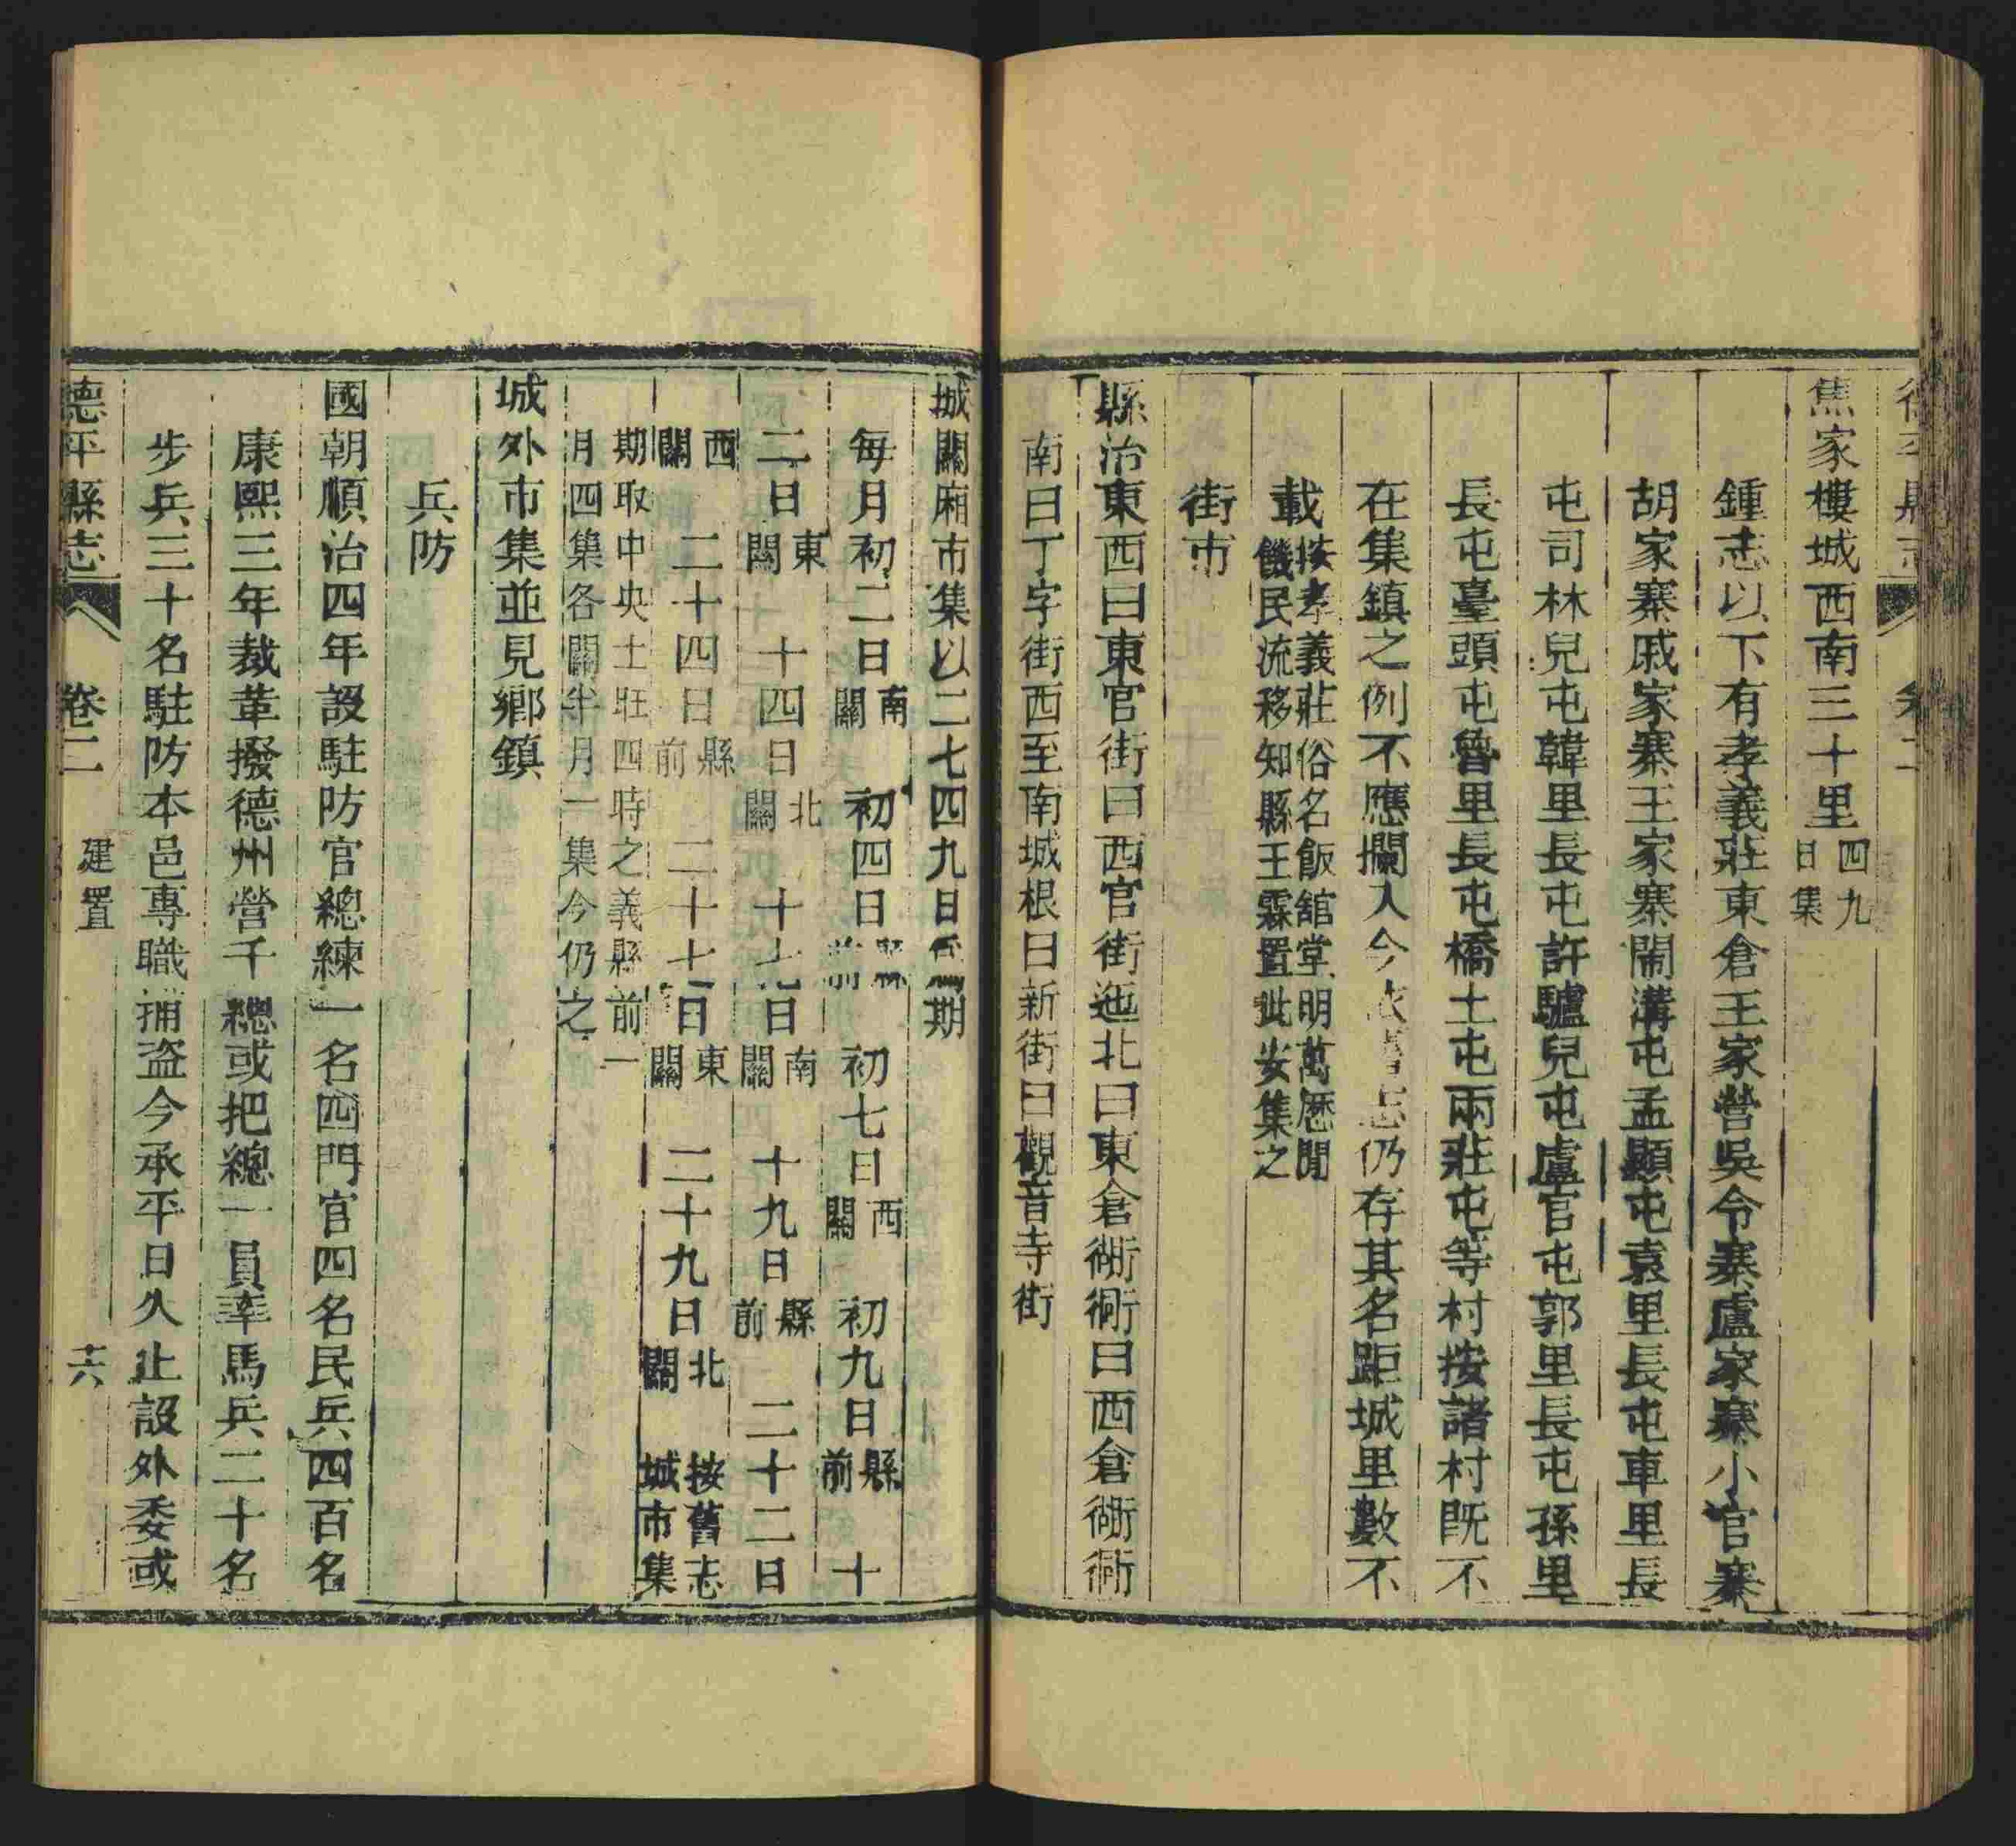 焦家樓城西南三十里四九日集
鍾志以下有孝義莊東倉王家營吳令寨盧家寨小官寨
胡家寨戚家寨王家寨鬧溝屯孟顯屯袁里長屯車里長
屯司林兒屯韓里長屯許驢兒屯盧官屯郭里長屯孫里
長屯臺頭屯魯里長屯橋土屯兩莊屯等村按諸村既不
在集鎮之例不應攔入今仍存其名距城里數不
載按孝義莊俗名飯舘堂明萬厯閒
饑民流移知縣王霖置此安集之
街市
縣治東西曰東官街曰西官街迤北曰東倉衚衕曰西倉衚衕
南曰丁字街西至南城根曰新街曰觀音寺街
城關廂市集以二七四九日為期
每月初二日南關 初四日縣前 初七日西關 初九日縣前 十
二日東關 十四日北關 十七日南關 十九日縣前 二十二日
西關 二十四日縣前 二十七日東關 二十九日北關 按舊志城市集
期取中央土旺四時之義縣前一
月四集各關半月一集今仍之
城外市集並見鄉鎮
兵防
國朝順治四年設駐防官總練一名四門官四名民兵四百名
康熙三年裁革撥德州營千總或把總一員率馬兵二十名
步兵三十名駐防本邑專職捕盜今承平日久止設外委或
德平縣志 卷二 建置 十六